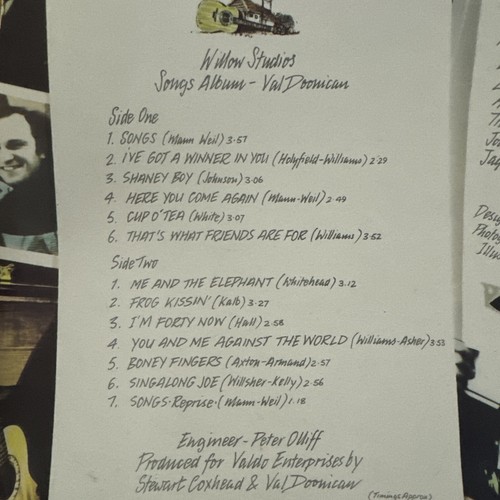 Willow Studios
Songs Album - Val Doonican
Side One
1. SONGS (Mann Weil) 3·57
2. I'VE GOT A WINNER IN YOU (Holyfield-Williams) 2·29
3. SHANEY BOY (Johnson) 3·06
4. HERE YOU COME AGAIN (Mann-Weil) 2·49
5. CUP O'TEA (White) 3·07
6. THAT'S WHAT FRIENDS ARE FOR (Williams) 3·52
Side Two
1. ME AND THE ELEPHANT (Whitehead) 3·12
2. FROG KISSIN' (Kalb) 3·27
3. I'M FORTY NOW (Hall) 2·58
4. YOU AND ME AGAINST THE WORLD (Williams-Asher) 3·53
5. BONEY FINGERS (Axton-Armand) 2·57
6. SINGALONG JOE (Willsher-Kelly) 2·56
7. SONGS·Reprise·(Mann-Weil) 1·18
Engineer - Peter Olliff
Produced for Valdo Enterprises by
Stewart Coxhead & Val Doonican
(Timings Approx)